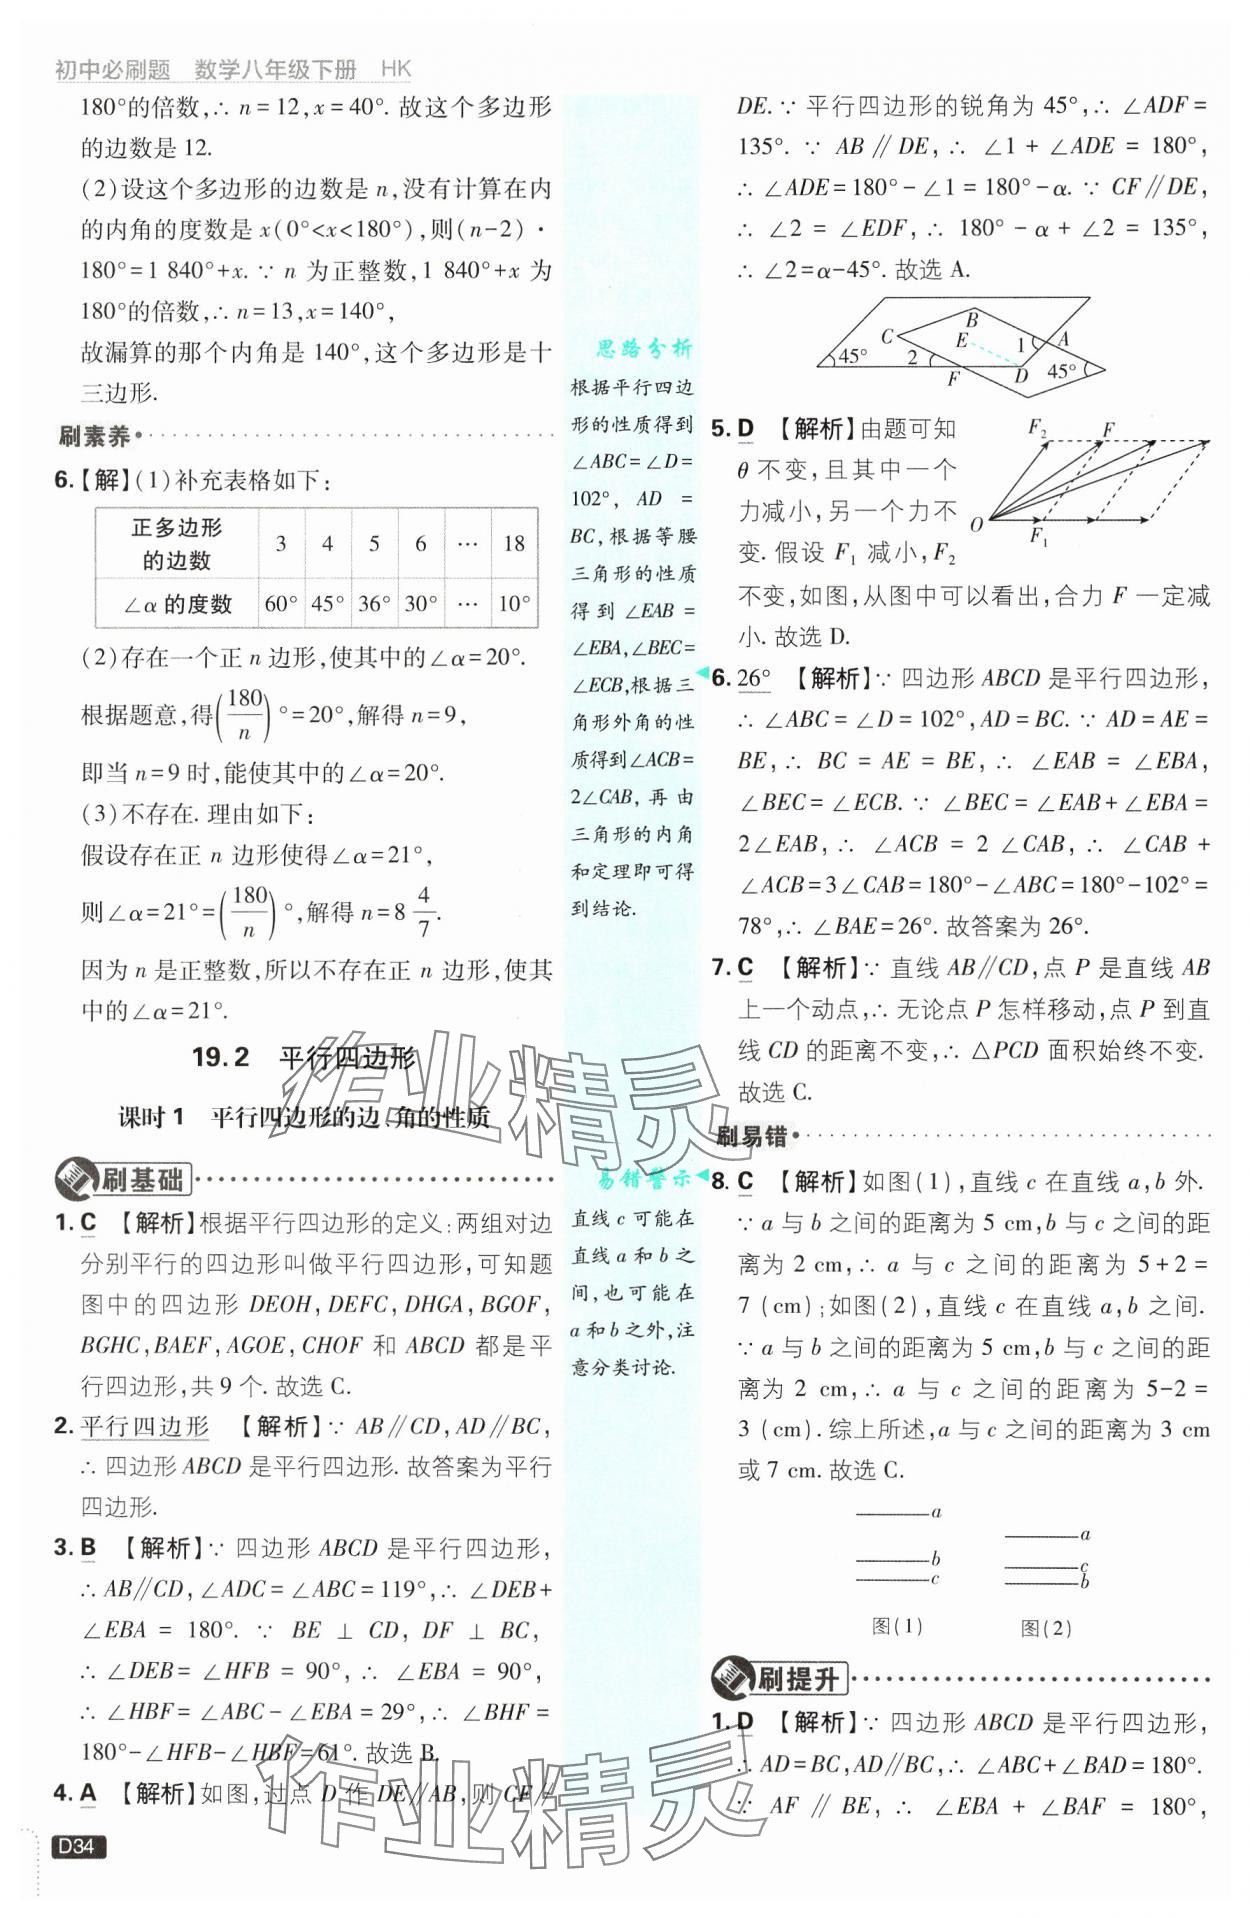 初中必刷题 数学八年级下册 HK
180°的倍数,∴ n=12,x=40°. 故这个多边形
的边数是 12.
(2)设这个多边形的边数是 n,没有计算在内
的内角的度数是 x(0°<x<180°),则(n-2)·
180°=1 840°+x. ∵ n 为正整数,1 840°+x 为
180°的倍数,∴ n=13,x=140°,
故漏算的那个内角是 140°,这个多边形是十
三边形.
刷素养
6.【解】(1)补充表格如下:
正多边形的边数 3 4 5 6 … 18
∠α 的度数 60° 45° 36° 30° … 10°
(2)存在一个正 n 边形,使其中的∠α=20°.
根据题意,得(180/n)°=20°,解得 n=9,
即当 n=9 时,能使其中的∠α=20°.
(3)不存在. 理由如下:
假设存在正 n 边形使得∠α=21°,
则∠α=21°=(180/n)°,解得 n=8 4/7.
因为 n 是正整数,所以不存在正 n 边形,使其
中的∠α=21°.
19.2 平行四边形
课时 1 平行四边形的边、角的性质
刷基础
1. C 【解析】根据平行四边形的定义:两组对边
分别平行的四边形叫做平行四边形,可知题
图中的四边形 DEOH,DEFC,DHGA,BGOF,
BGHC,BAEF,AGOE,CHOF 和 ABCD 都是平
行四边形,共 9 个. 故选 C.
2. 平行四边形 【解析】∵ AB∥CD,AD∥BC,
∴ 四边形 ABCD 是平行四边形. 故答案为平行
四边形.
3. B 【解析】∵ 四边形 ABCD 是平行四边形,
∴ AB∥CD,∠ADC=∠ABC=119°,∴ ∠DEB+
∠EBA = 180°. ∵ BE ⊥ CD, DF ⊥ BC,
∴ ∠DEB= ∠HFB = 90°, ∴ ∠EBA = 90°,
∴ ∠HBF=∠ABC-∠EBA=29°,∴ ∠BHF=
180°-∠HFB-∠HBF=61°. 故选 B.
4. A 【解析】如图,过点 D 作 DE∥AB,则 CF∥
D34
思路分析
根据平行四边
形的性质得到
∠ABC=∠D=
102°, AD =
BC,根据等腰
三角形的性质
得到 ∠EAB =
∠EBA,∠BEC=
∠ECB,根据三
角形外角的性
质得到∠ACB=
2∠CAB,再由
三角形的内角
和定理即可得
到结论.
易错警示
直线 c 可能在
直线 a 和 b 之
间,也可能在
a 和 b 之外,注
意分类讨论.
DE. ∵ 平行四边形的锐角为 45°,∴ ∠ADF =
135°. ∵ AB∥DE, ∴ ∠1 + ∠ADE = 180°,
∴ ∠ADE=180°-∠1=180°-α. ∵ CF∥DE,
∴ ∠2 = ∠EDF, ∴ 180° - α + ∠2 = 135°,
∴ ∠2=α-45°. 故选 A.
B
C E 1 A
45° 2
F D 45°
5. D 【解析】由题可知
θ 不变,且其中一个
力减小,另一个力不
变. 假设 F₁ 减小,F₂
不变,如图,从图中可以看出,合力 F 一定减
小. 故选 D.
F₂ F
O F₁
6. 26° 【解析】∵ 四边形 ABCD 是平行四边形,
∴ ∠ABC=∠D=102°,AD=BC. ∵ AD=AE=
BE,∴ BC = AE = BE,∴ ∠EAB = ∠EBA,
∠BEC=∠ECB. ∵ ∠BEC=∠EAB+∠EBA=
2∠EAB,∴ ∠ACB = 2 ∠CAB,∴ ∠CAB +
∠ACB=3∠CAB=180°-∠ABC=180°-102°=
78°,∴ ∠BAE=26°. 故答案为 26°.
7. C 【解析】∵ 直线 AB∥CD,点 P 是直线 AB
上一个动点,∴ 无论点 P 怎样移动,点 P 到直
线 CD 的距离不变,∴ △PCD 面积始终不变.
故选 C.
刷易错
8. C 【解析】如图(1),直线 c 在直线 a,b 外.
∵ a 与 b 之间的距离为 5 cm,b 与 c 之间的距
离为 2 cm,∴ a 与 c 之间的距离为 5+2=
7 (cm);如图(2),直线 c 在直线 a,b 之间.
∵ a 与 b 之间的距离为 5 cm,b 与 c 之间的距
离为 2 cm,∴ a 与 c 之间的距离为 5-2=
3 (cm). 综上所述,a 与 c 之间的距离为 3 cm
或 7 cm. 故选 C.
a
b
c
图(1)
a
c
b
图(2)
刷提升
1. D 【解析】∵ 四边形 ABCD 是平行四边形,
∴ AD=BC,AD∥BC,∴ ∠ABC+∠BAD=180°.
∵ AF∥BE, ∴ ∠EBA + ∠BAF = 180°,
作业精灵
作业精灵